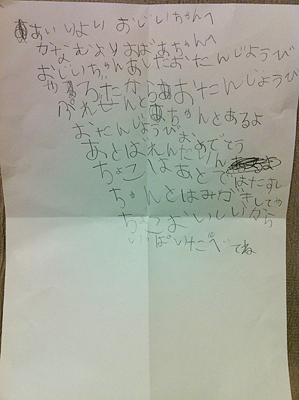 あいりより おじいちゃんへ
かなむよりおばあちゃんへ
おじいちゃんあしたおたんじょうび
おたんじょうび
ぷれぜんと あちゃんとあるよ
おたんじょうびおめでとう
あとばれんたいん
ちょこはあとでわたすし
ちゃんとはみがきしてや
ちょこおいしいから
いっぱいたべてね